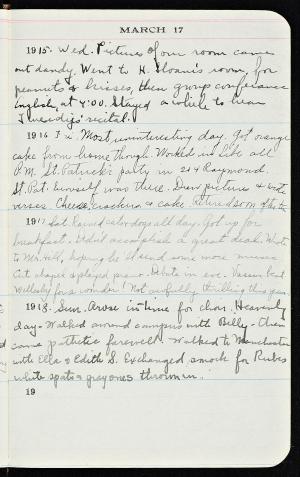 MARCH 17
1915. Wed. Pictures of our room came
out dandy. Went to H. Sloan's room for
peanuts & kisses, then group conference
English, at 4:00. Stayed a while to hear
recital.
1916 Most uninteresting day. Got orange
cake from home though. Worked in Libe all
P.M. St. Patrick's party in 214 Raymond.
St. Pat. himself was there. Drew pictures & wrote
verses. Cheese, crackers & cake.
1917 Sat. Rained cats & dogs all day. Got up for
breakfast. Didn't accomplish a great deal. Wrote
to Mr. Hill, hoping he'd send some more music
Cut chapel & played piano. Debate in eve. Vassar beat
Wellesley for a wonder! Not awfully thrilling this year.
1918. Sun. Arose in time for choir. Heavenly
day. Walked around campus with Billy. Then
came pathetic farewell. Walked to Manchester
with Ella & Edith S. Exchanged smock for Rubes
white spats & grey ones thrown in.
19